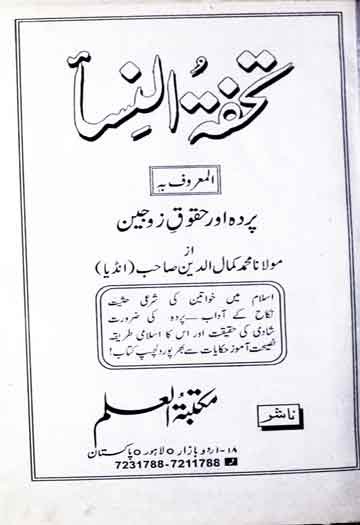 تحفۃ النِّسأ
المعروف بہ
پردہ اور حقوقِ زوجین
از
مولانا محمد کمال الدین صاحب (انڈیا)
اسلام میں خواتین کی شرعی حیثیت
نکاح کے آداب – پردہ کی ضرورت
شادی کی حقیقت اور اس کا اسلامی طریقہ
نصیحت آموز حکایات سے بھرپور دلچسپ کتاب!
ناشر
مکتبۃ العلم
۱۸- اردو بازار لاہور پاکستان
7231788-7211788